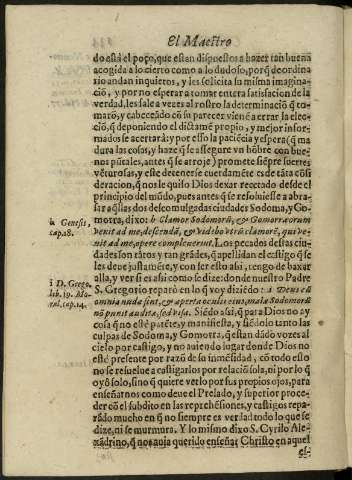 El Maestro
do está el poço, que estan dispuestos a hazer tan buena
acogida a lo cierto como a lo dudoso, porq̃ de ordina
rio andan inquietos, y les solicita su misma imagina-
ciō, y por no esperar a tomar entera satisfacion de la
verdad, les sale a vezes al rostro la determinaciō q̃ to
marō, y cabeceādo cō su parecer vienē a errar la elec-
ciō, q̃ deponiendo el dictamē propio, y mejor infor-
mados se acertara: y por esso la paciēcia y espera (q̃ ma
dura las cosas, y haze q̃ se assegure vn hōbre con bue-
nos pūtales, antes q̃ se arroje) promete siēpre suertes
vēturosas, y este detenerse cuerdamēte es de tāta cōsi
deracion, q̃ nos le quiso Dios dexar recetado desde el
principio del mūdo, pues antes q̃ se resoluiesse a abra-
sar aq̃llas dos descomulgadas ciudades Sodoma, y Go-
morra, dixo: h Clamor Sodomorū, & Gomorræorum
h Genesis,
cap. 18.
venit ad me, descendā, & videbo vtrū clamorē, qui ve-
nit ad me, opere compleuerut. Los pecados destas ciu-
dades son raros y tan grādes, q̃ apellidan el castigo q̃ se
les deue justamēte, y con ser esto assi, tengo de baxar
alla, y ver si es assi como se dize: donde nuestro Padre
S. Gregorio reparò en lo que voy diziēdo: i Deus cū
i D. Grego.
lib. 19. Mo-
ral. cap. 14.
omnia nuda sint, & aperta oculis eius, mala Sodomorū
nō punit audita, sed visa. Siēdo assi, q̃ para Dios no ay
cosa q̃ no estè patēte, y manifiesta, y siēdolo tanto las
culpas de Sodoma, y Gomorra, q̃ estan dādo vozes al
cielo por castigo, y no auiendo lugar donde Dios no
estè presente por razō de su inmēsidad, cō todo esso
no se resuelue a castigarlos por relaciō sola, ni por lo q̃
oyò solo, sino q̃ quiere verlo por sus propios ojos, para
enseñarnos como deue el Prelado, y superior proce-
der cō el subdito en las reprehēsiones, y castigos repa-
rādo mucho en q̃ no siempre es verdad todo lo que se
dize, ni se murmura. Y lo mismo dixo S. Cyrilo Ale-
xādrino, q̃ nos auia querido enseñar Christo en aquel